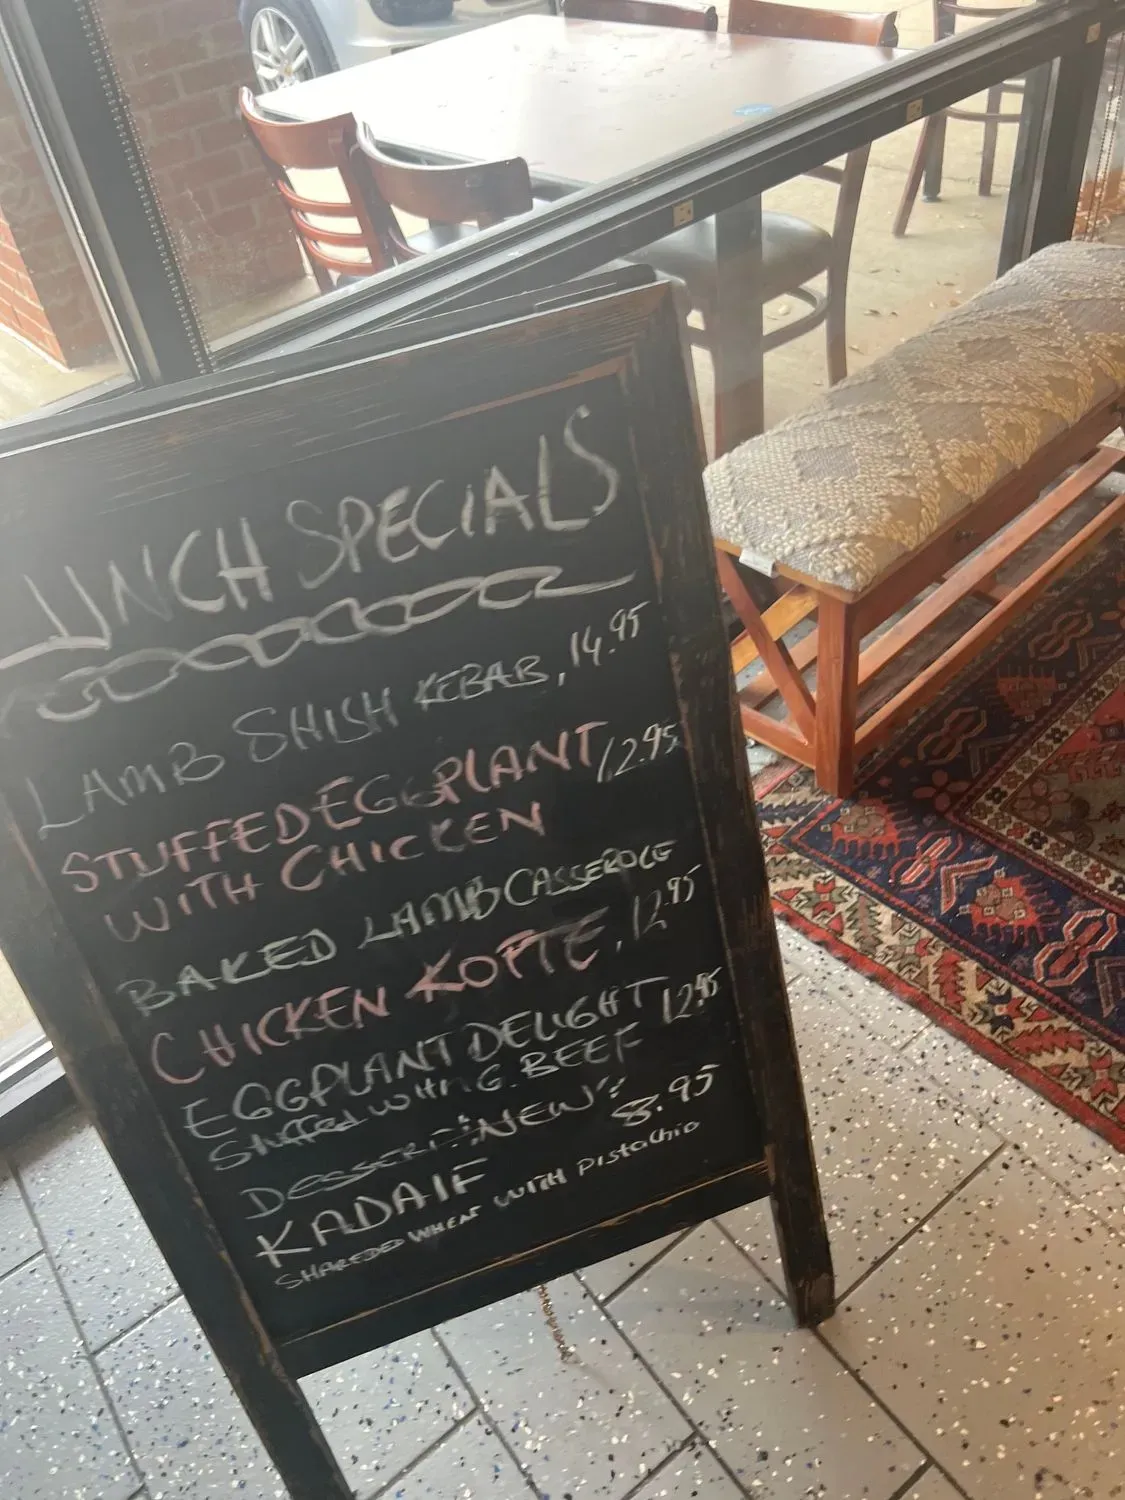 LUNCH SPECIALS
LAMB SHISH KEBAB, 14.95
STUFFED EGGPLANT 12.95
WITH CHICKEN
BAKED LAMB CASSEROLE
CHICKEN KOFTE, 12.95
EGGPLANT DELIGHT
Stuffed with G. BEEF 12.95
DESSERT: NEW
KADAIF 8.95
SHAREDED WHEAT WITH PISTACHIO